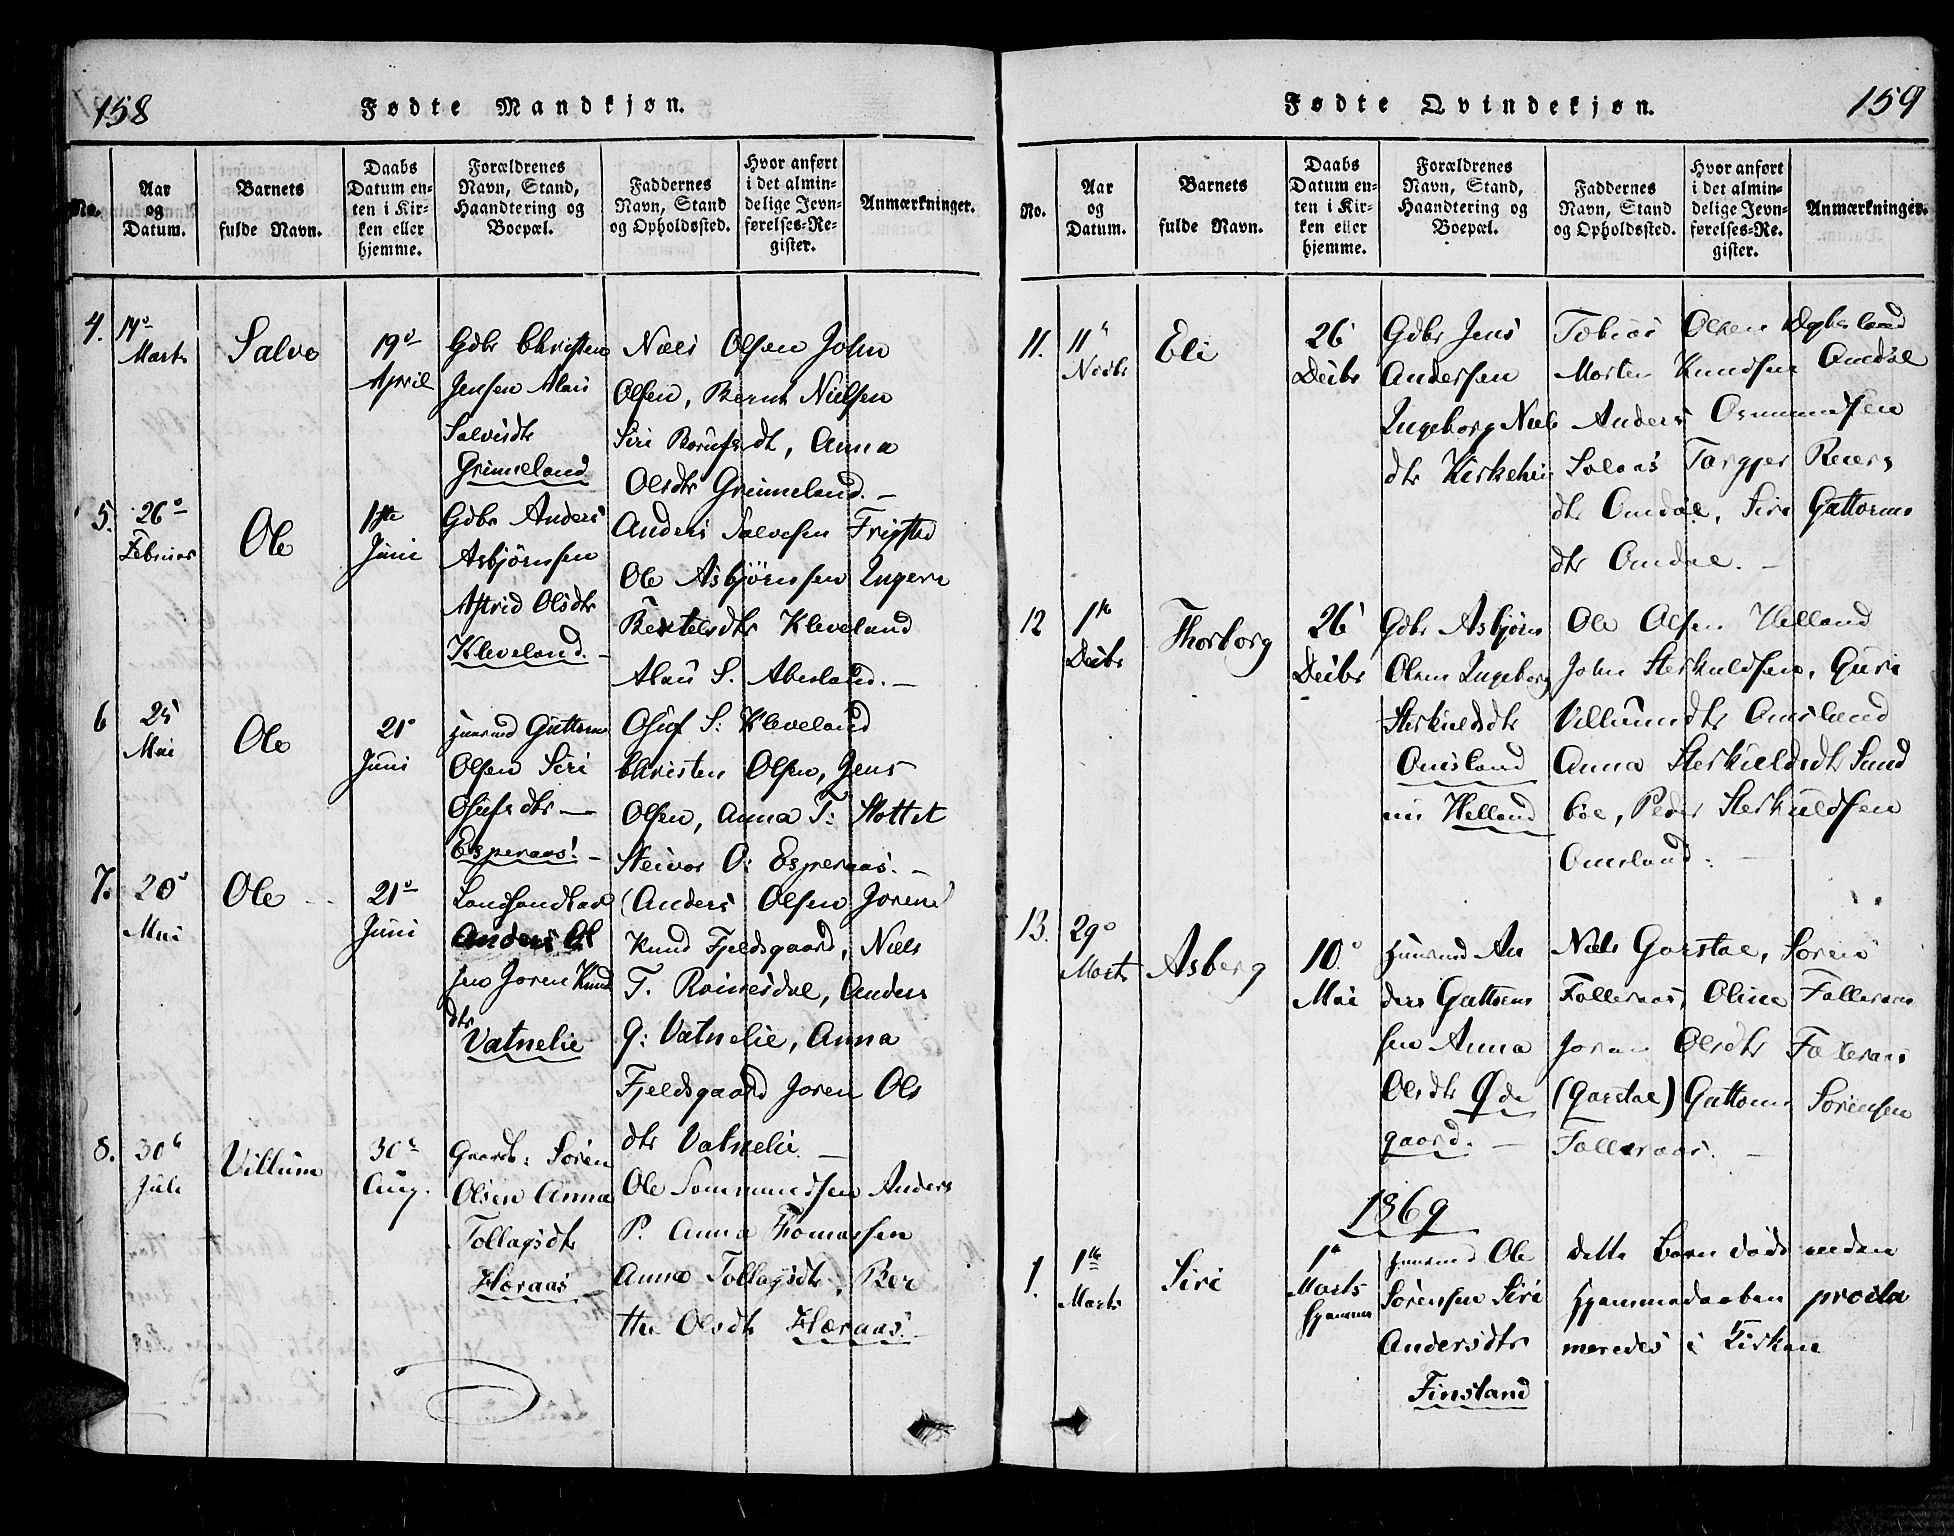 158
Fødte Mandkjøn.
No.
Aar
og
Datum.
Barnets
fulde Navn.
Daabs
Datum en-
ten i Kir-
ken eller
hjemme.
Forældrenes
Navn, Stand,
Haandtering og
Boepæl.
Faddernes
Navn, Stand
og Opholdssted.
Hvor anført
i det almin-
delige Jevn-
førelses-Re-
gister.
Anmærkninger.
4.
14de
Marts
Salve
19de
April
Gdbr Christen
Jensen Alais
Salvisdtr
Grimeland
Niels Olsen John
Olsen, Bernt Nielsen
Siri dt, Anna
Olsdtr Grimeland. –
5.
26de
Februar
Ole
1ste
Juni
Gdbr Anders
Asbjørnsen
Astrid Olsdtr
Kleveland. –
Anders Salvesen Fripstad
Ole Asbjørnsen Ingeri
Bertelsdtr Kleveland
Alais S. Abesland. –
6
25
Mai
Ole
21de
Juni
Huusmd Guttorm
Olsen Siri
Osufsdtr –
Esperaas! –
Osuf S: Kleveland
Christen Olsen, Jens
Olsen, Anna T: Stottet
Steivor O: Esperaas. –
7.
20de
Mai
Ole
21de
Juni
Landhandler
Anders Ol
sen Joren Knud
dtr
Vatnelie
(Anders Olsen Joren
Knud Fjeldsgaard, Niels
T. Roinesdal, Anders
G: Vatnelie, Anna
Fjeldsgaard Joren Ols
dtr Vatnelie. –
8.
30te
Juli
Villum
30te
Aug.
Gaardb: Søren
Olsen Anna
Tollagsdtr
Høraas
Ole Sommundsen Anders
P. Anna Thomassen
Anna Tollagsdtr, Ber
the Olsdtr Høraas. –
159
Fødte Qvindekjøn.
No.
Aar
og
Datum.
Barnets
fulde Navn.
Daabs
Datum en-
ten i Kir-
ken eller
hjemme.
Forældrenes
Navn, Stand,
Haandtering og
Boepæl.
Faddernes
Navn, Stand
og Opholdssted.
Hvor anført
i det almin-
delige Jevn-
førelses-Re-
gister.
Anmærkninger.
11.
11te
Novbr
Eli
26
Decbr
Gdbr Jens
Andersen
Ingeborg Niels
dtr Kirkehei
Tobias Olsen Døbesland
Morten Knudsen Omdal
Anders Osmundsen
Solaas Torgjer Reiers
dtr Omdal, Siri Guttorms
dtr Omdal. –
12
1te
Decbr
Thorborg
26
Decbr
Gdbr Asbjørn
Olsen Ingeborg
Sterkuldsdtr
Omsland
nu Helland
Ole Olsen Helland
John Sterkuldsen, Guri
Villumsdtr Omsland
Anna Sterkuldsdtr Sund
bøe, Peder Sterkuldsen
Omsland. –
13.
29de
Marts
Asberg
10de
Mai
Huusmd An
ders Guttorm
sen Anna
Olsdtr Øde
gaard. –
Niels Garstøl, Søren
Folleraas, Oline Folleraas
Joren Olsdtr Folleraas
(Garstøl) Guttorm Sørensen
Folleraas. –
1869
1.
1te
Marts
Siri
1te
Marts
Hjemme
Huusmd Ole
Sørensen Siri
Andersdtr
Finsland
Dette Barn døde inden
Hjemmedaaben procla
meredes i Kirken